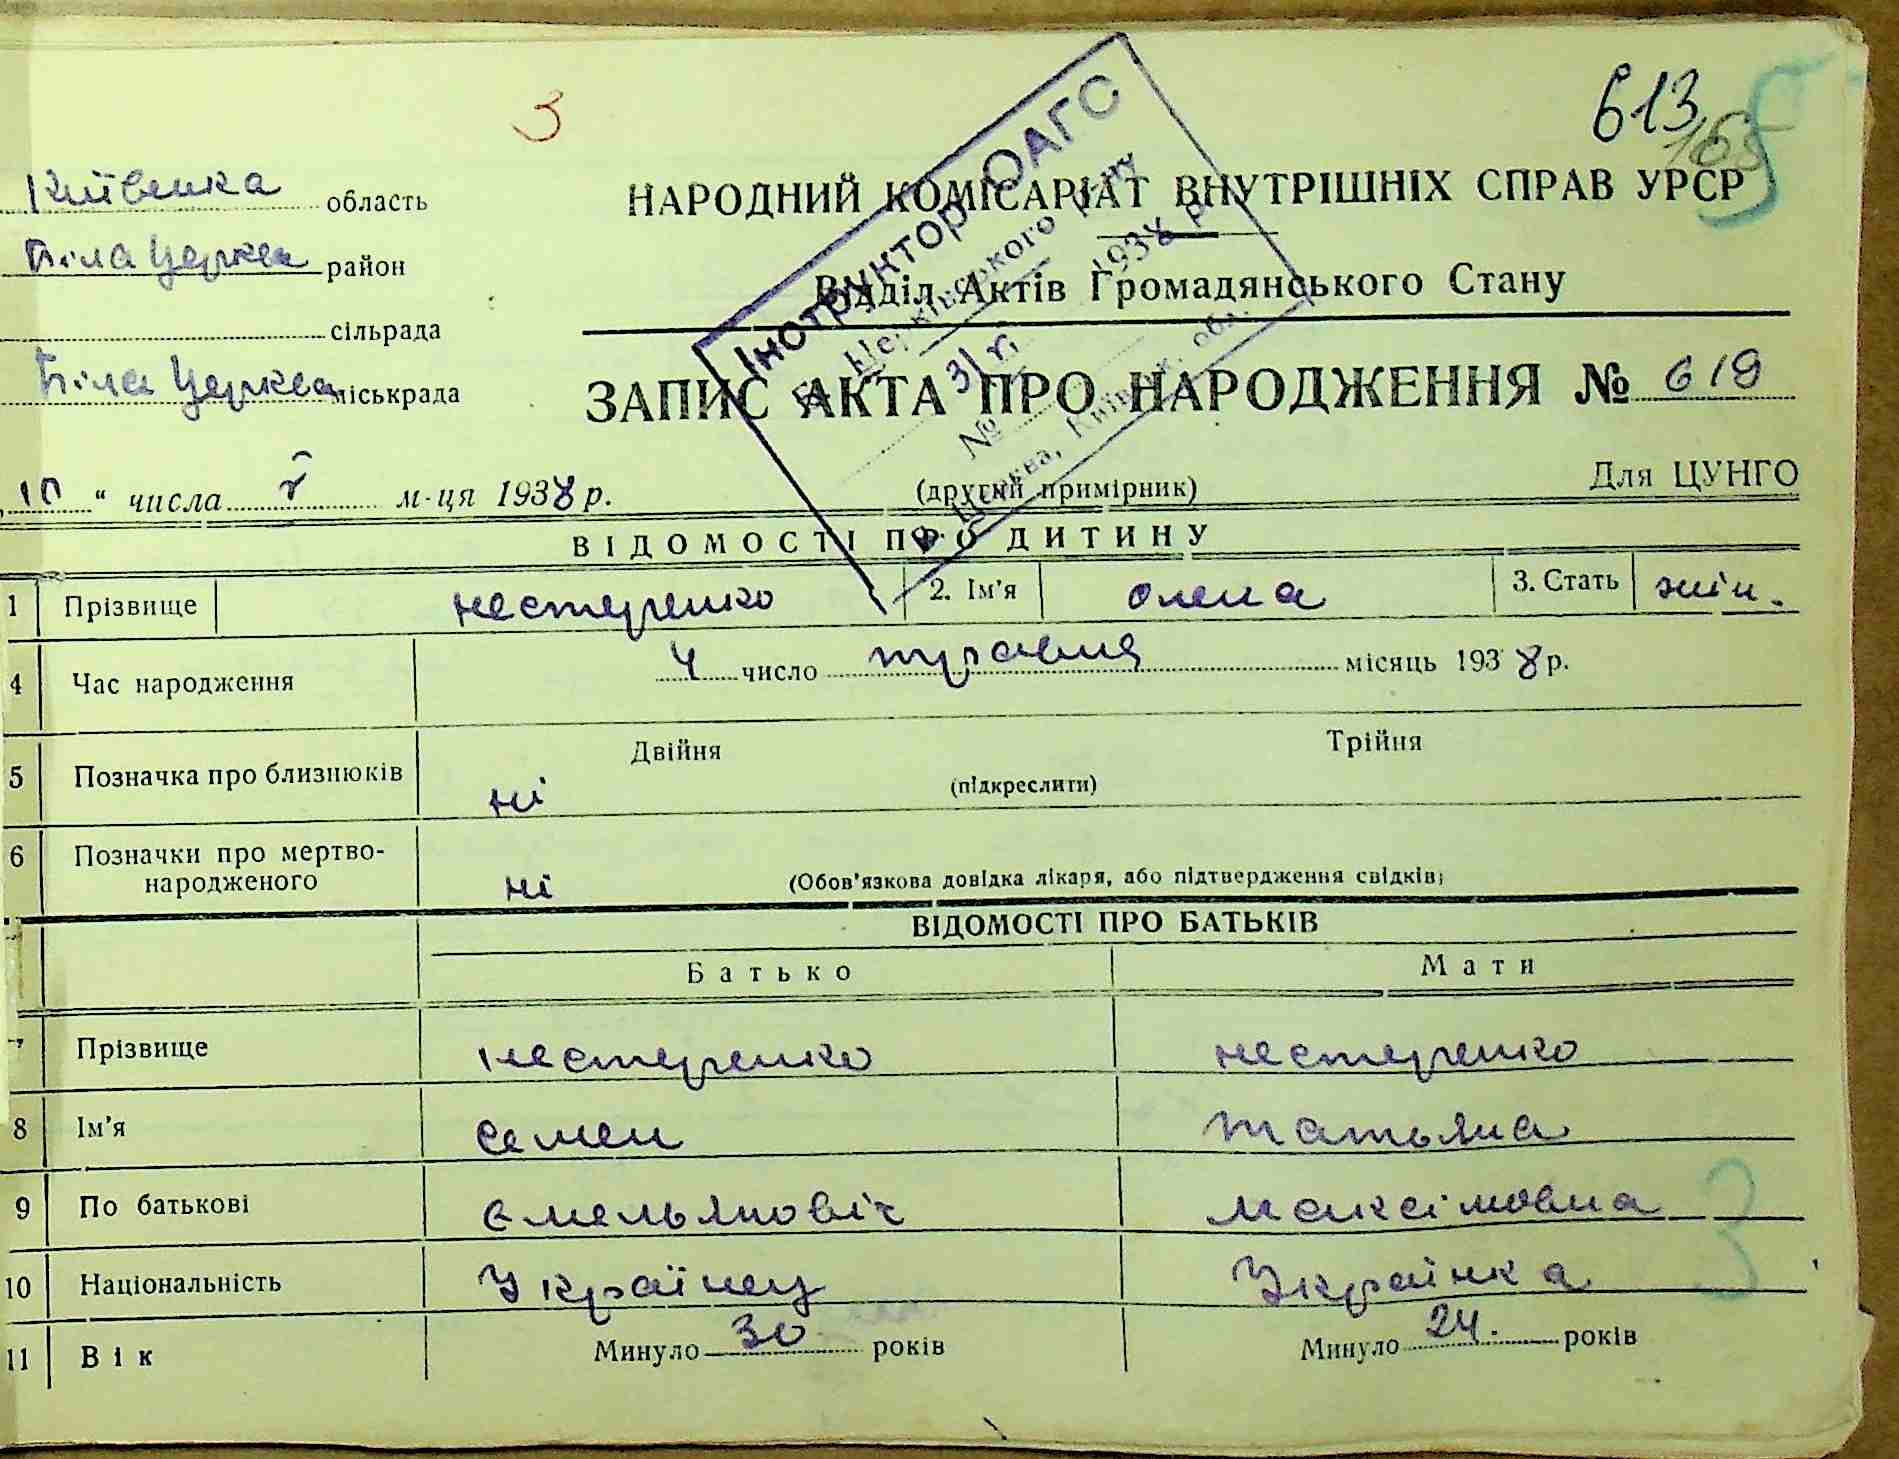 3
613
Київська область
НАРОДНИЙ КОМІСАРІАТ ВНУТРІШНІХ СПРАВ УРСР
Біла Церква район
Відділ Актів Громадянського Стану
сільрада
Біла Церква міськрада
ЗАПИС АКТА ПРО НАРОДЖЕННЯ № 619
Інструктор ОАГС
Б. Церківського р-ну
31 1938 р.
№
Б. Церква, Київськ. обл.
10 " числа V м-ця 1938 р. (другий примірник) Для ЦУНГО
ВІДОМОСТІ ПРО ДИТИНУ
1 Прізвище нестеренко 2. Ім'я олена 3. Стать жін.
4 Час народження 4 число травня місяць 1938 р.
5 Позначка про близнюків ні Двійня (підкреслити) Трійня
6 Позначки про мертво-
народженого ні (Обов'язкова довідка лікаря, або підтвердження свідків)
ВІДОМОСТІ ПРО БАТЬКІВ
Батько Мати
7 Прізвище нестеренко нестеренко
8 Ім'я семен татьяна
9 По батькові омельяновіч максімовна
10 Національність Українец Українка
11 Вік Минуло 30 років Минуло 24. років
3